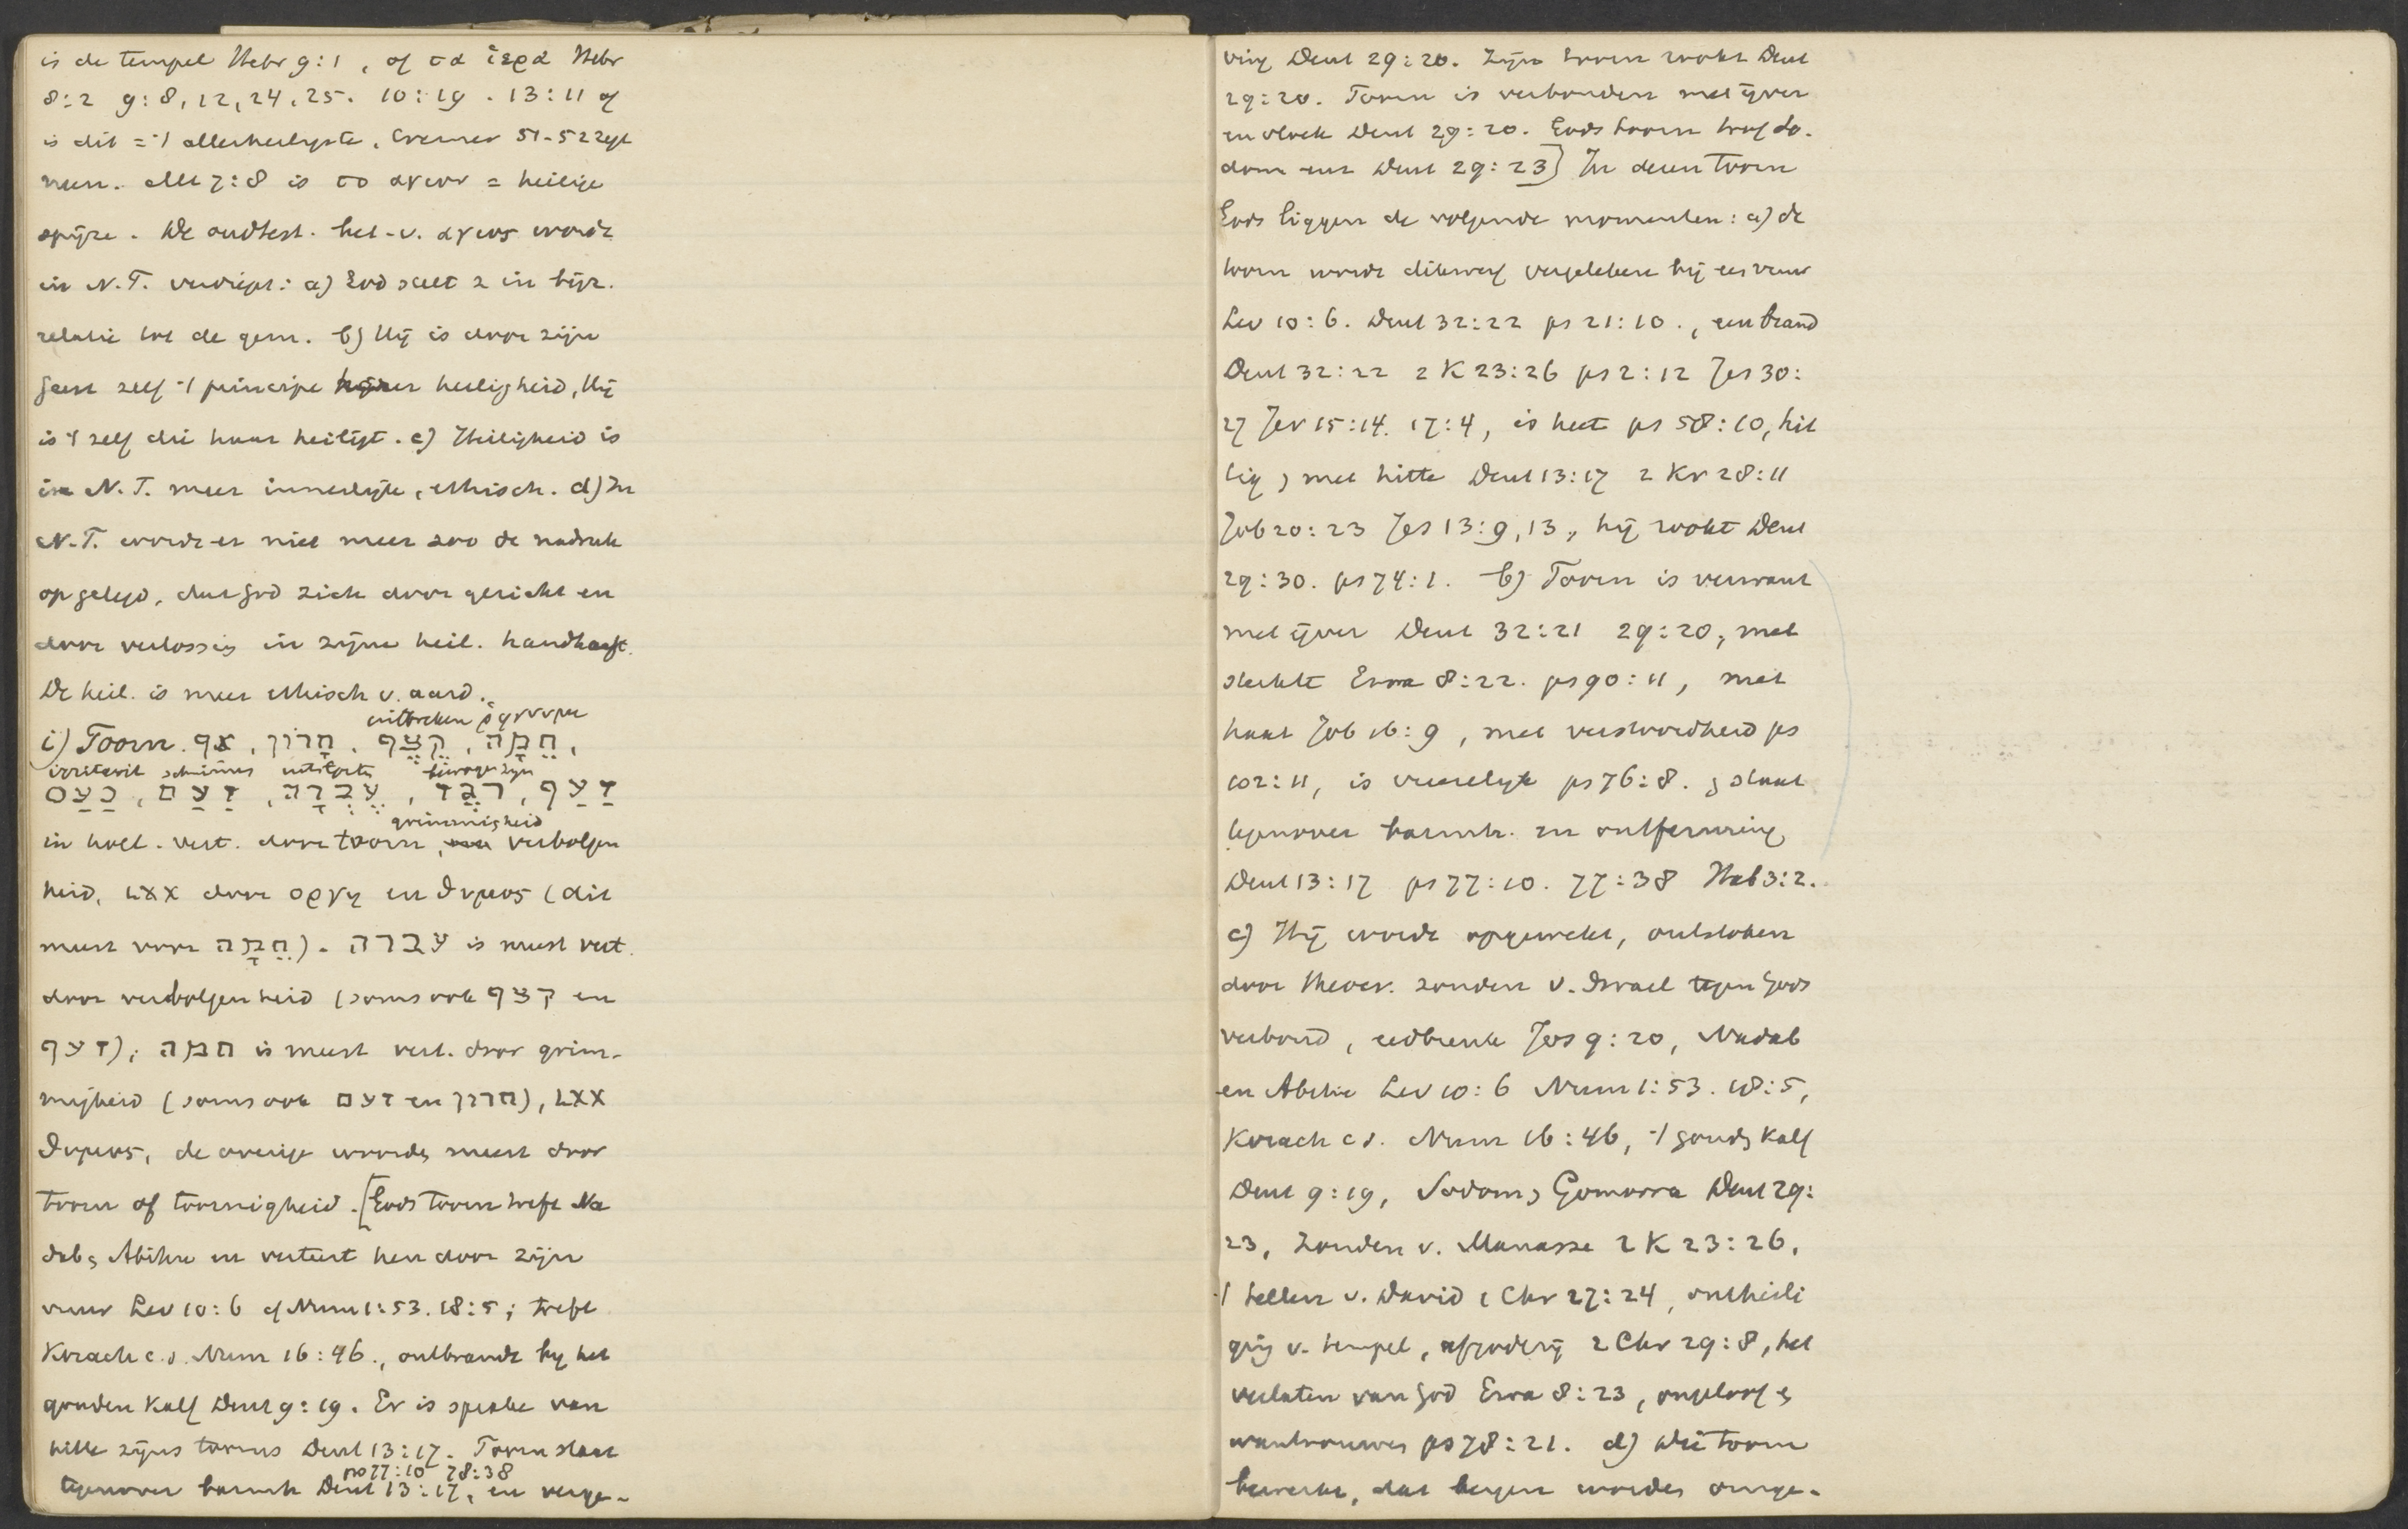 is de tempel Hebr 9:1, of τα ἱερα Hebr
8:2 9:8, 12, 24, 25. 10:19. 13:11 of
is dit = 't allerheiligste, Cremer 51-52 zegt
neen. Mt 7:6 is το αγιον = heilige
spijze. De oudtest. bet. v. αγιος wordt
in N.T. verdiept: a) God stelt z in bijz.
relatie tot de gem. b) Hij is door zijn
Geest zelf 't principe harer heiligheid, Hij
is 't zelf die haar heiligt. c) Heiligheid is
in N.T. meer innerlijk, ethisch. d) In
N.T. wordt er niet meer zoo de nadruk
op gelegd, dat God zich door gericht en
door verlossing in zijne heil. handhaaft.
De heil. is meer ethisch v. aard.
uitbreken
i) Toorn. אף, חרון, קצף, חמה,
irritavit schuimen uitstorten bewogen zijn
זעף, רגז, עברה, זעם, כעס
grimmigheid
in holl. vert. door toorn, verbolgen
heid, LXX door οργη en θυμος (dit
meest voor חמה). עברה is meest vert.
door verbolgenheid (soms ook קצף en
זעף); חמה is meest vert. door grim-
migheid (soms ook זעם en חרון), LXX
θυμος, de overige woorden meest door
toorn of toornigheid. [Gods toorn treft Na
dab & Abihu en verteert hen door zijn
vuur Lev 10:6 cf Num 1:53. 18:5; treft
Korach c.s. Num 16:46., ontbrandt bij het
gouden kalf Deut 9:19. Er is sprake van
hitte zijns toorns Deut 13:17. Toorn staat
ps 77:10 78:38
tegenover barmh Deut 13:17, en verge-
ving Deut 29:20. Zijn toorn rookt Deut
29:20. Toorn is verbonden met ijver
en vloek Deut 29:20. Gods toorn trof So-
dom enz Deut 29:23] In dezen toorn
Gods liggen de volgende momenten: a) de
toorn wordt dikwerf vergeleken bij een vuur
Lev 10:6. Deut 32:22 ps 21:10., een brand
Deut 32:22 2 K 23:26 ps 2:12 Jes 30:
27 Jer 15:14. 17:4, is heet ps 58:10, hit
tig, met hitte Deut 13:17 2 Kr 28:11
Job 20:23 Jes 13:9, 13, hij rookt Deut
29:30. ps 74:1. b) Toorn is verwant
met ijver Deut 32:21 29:20, met
sterkte Ezra 8:22. ps 90:11, met
haat Job 16:9, met verstoordheid ps
102:11, is vreeselijk ps 76:8. & staat
tegenover barmh. en ontferming
Deut 13:17 ps 77:10. 77:38 Hab 3:2.
c) Hij wordt opgewekt, ontstoken
door theocr. zonden v. Israel tegen Gods
verbond, eedbreuk Joz 9:20, Nadab
en Abihu Lev 10:6 Num 1:53. 18:5,
Korach c s. Num 16:46, 't gouden kalf
Deut 9:19, Sodom & Gomorra Deut 29:
23, Zonden v. Manasse 2 K 23:26,
't tellen v. David 1 Chr 27:24, ontheili
ging v. tempel, afgoderij 2 Chr 29:8, het
verlaten van God Ezra 8:23, ongeloof &
wantrouwen ps 78:21. d) Die toorn
bewerkt, dat bergen worden omge-